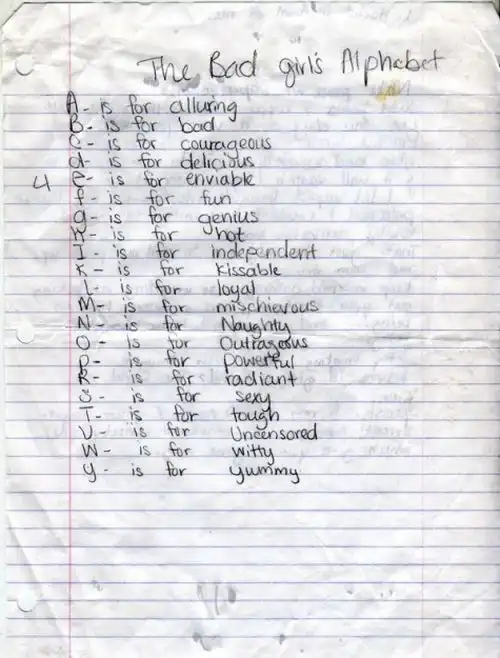 The Bad girl's Alphabet
A- is for alluring
B- is for bad
C- is for courageous
d- is for delicious
4 e- is for enviable
f- is for fun
g- is for genius
H- is for hot
I- is for independent
K- is for kissable
L- is for loyal
M- is for mischievous
N- is for Naughty
O- is for Outrageous
p- is for powerful
R- is for radiant
S- is for sexy
T- is for tough
U- is for Uncensored
W- is for witty
y- is for yummy